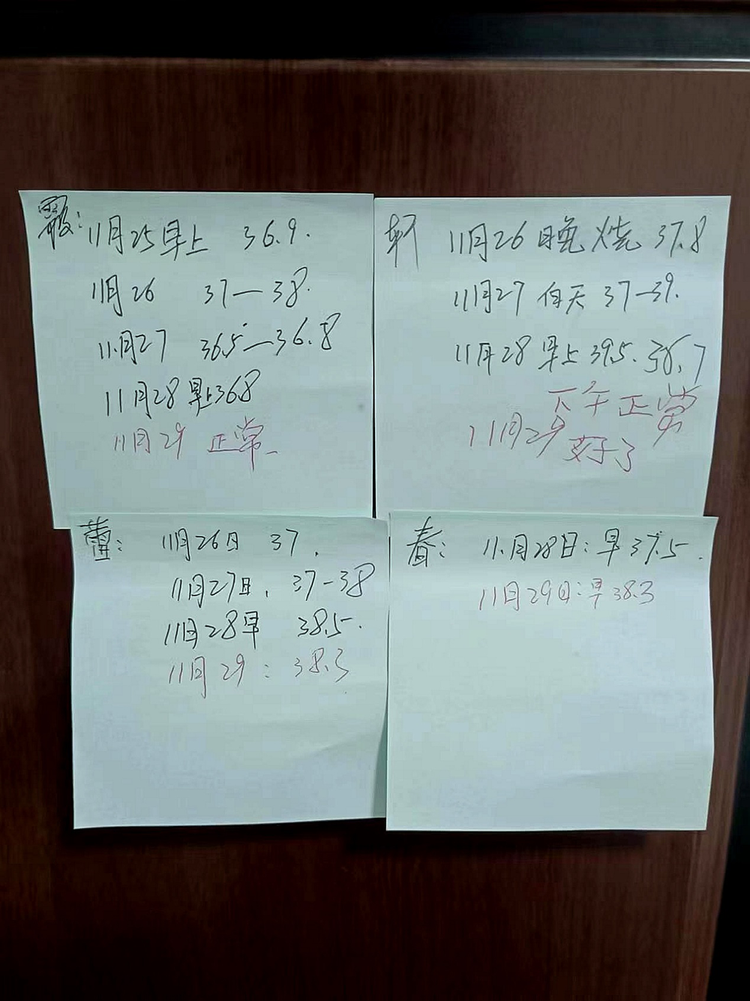 11月25早上 36.9.
11月26 37—38.
11月27 36.5—36.8
11月28早上36.8
11月29 正常
轩 11月26 晚烧 37.8
11月27 白天 37—39.
11月28 早上 39.5. 36.7
下午正常
11月29 好了
蕾: 11月26日 37.
11月27日. 37-38
11月28早 38.5.
11月29: 38.3
春: 11.月28日:早37.5.
11月29日:早38.3